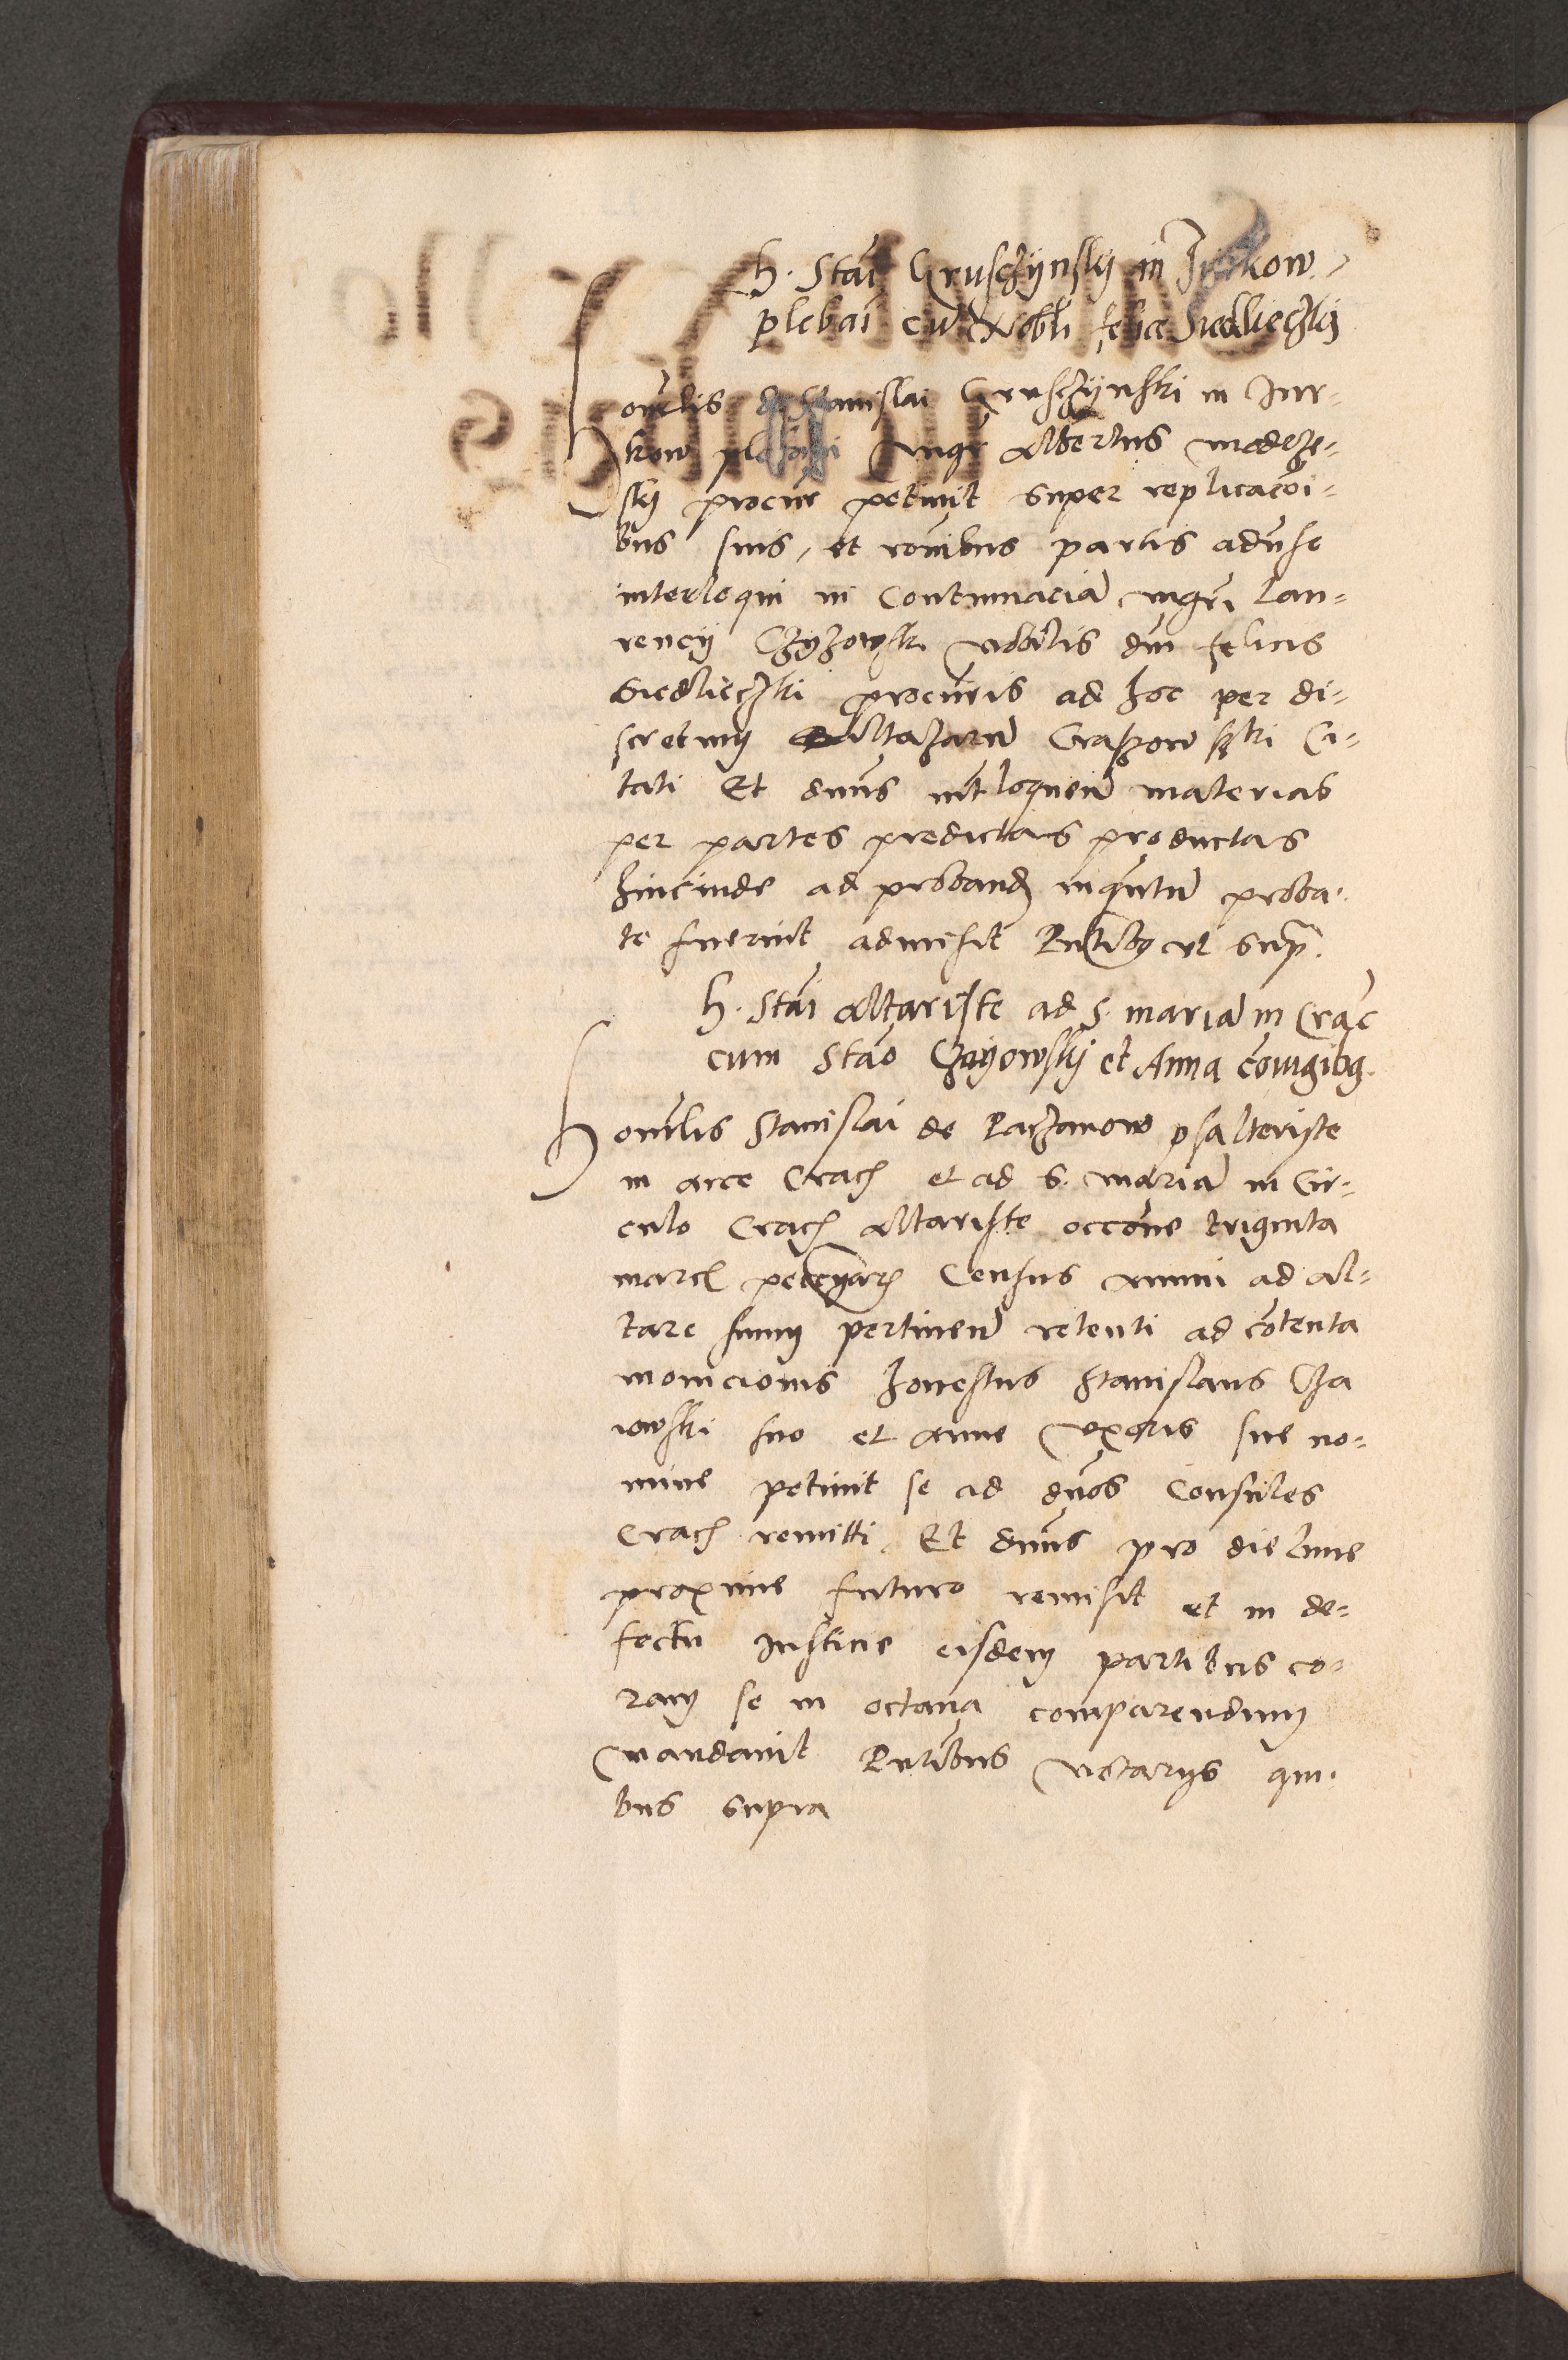 h. Stai Gruschÿnskÿ in Jurkow
plebāi cū Nobli felice Siedlieczkÿ
Honorlis d. Stanislai Gruschÿnski in Jur-
kow plebani mgr Albertus
skÿ procur petivit super replicacōi-
bus suis, et roībus partis aduse
interloqui in Contumaciā mgri Lau-
rencÿ Czÿzowski nobilis dni felicis
Siedlieczki procuris ad hoc per di-
scretum Baltazarū Craszowski Ci-
tati Et dnus intloquenď materias
per partes predictas productas
hincinde ad probanď inqntū proba-
te fuerint admisit Pntibq ut supͣ.
h. Stāi Altariste ad S. mariā in Crac̄
cum Stāo Czayowskÿ et Anna cōiugibq.
Honorlis Stanislai de Paczanow psalteriste
in arce Crac̄ et ad S. Mariā in Cir-
culo Crac̄ Altariste occōne triginta
marc̄ pecuniar̄ Census Annui ad Al-
tare suum pertineň retenti ad cōtenta
monicionis honestus Stanislaus Cza
iowski suo et Anne Uxoris sue no-
mine petivit se ad dnos Consules
Crac̄ remitti. Et dnus pro die lune
proxime futuro remisit et in de-
fectu Justicie eisdem partibus co-
ram se in octava comparendum
mandavit Pntibus Notarÿs qui-
bus supra